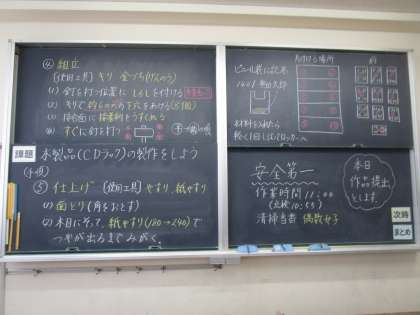 ④ 組立
[使用工具] きり 金づち(げんのう)
(1) 釘を打つ位置にしるしを付ける
(2) きりで約6mmの下穴をあける(8個)
(3) 接合面に接着剤をうすくぬる
すぐに釘を打つ
課題 木製品(CDラック)の製作をしよう
(手順)
⑤ 仕上げ [使用工具] やすり、紙やすり
(1) 面とり(角をおとす)
(2) 木目にそって、紙やすり(180→240)で
つやが出るまでみがく。
ビニール袋に記名
片付ける場所
前
安全第一
作業時間 11:00
(点検 10:55)
清掃当番 偶数女子
本日
作品提出
とします
次時
まとめ